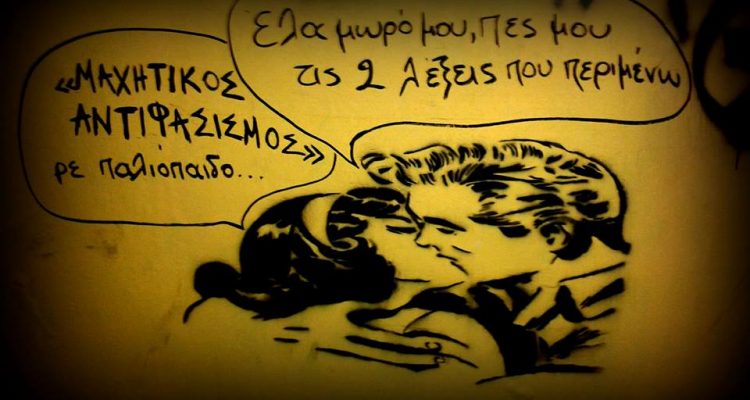 Ελα μωρό μου, πες μου
τις 2 λέξεις που περιμένω
«ΜΑΧΗΤΙΚΟΣ
ΑΝΤΙΦΑΣΙΣΜΟΣ»
ρε παλιόπαιδο...